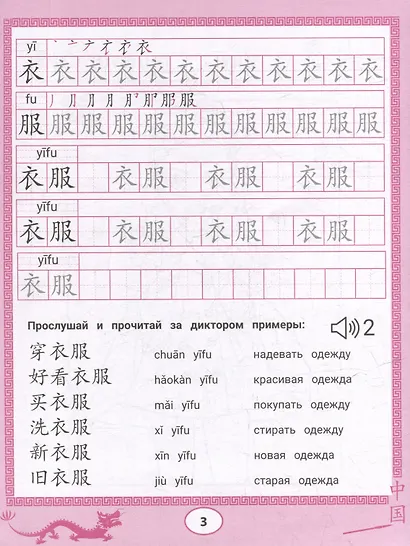 yī
衣 衣 衣 衣 衣 衣 衣 衣 衣 衣 衣 衣
fu
服 服 服 服 服 服 服 服 服 服 服 服
yīfu
衣 服 衣 服 衣 服 衣 服
yīfu
衣 服 衣 服 衣 服 衣 服
yīfu
衣 服
Прослушай и прочитай за диктором примеры: 2
穿衣服 chuān yīfu надевать одежду
好看衣服 hǎokàn yīfu красивая одежда
买衣服 mǎi yīfu покупать одежду
洗衣服 xǐ yīfu стирать одежду
新衣服 xīn yīfu новая одежда
旧衣服 jiù yīfu старая одежда
中国
3